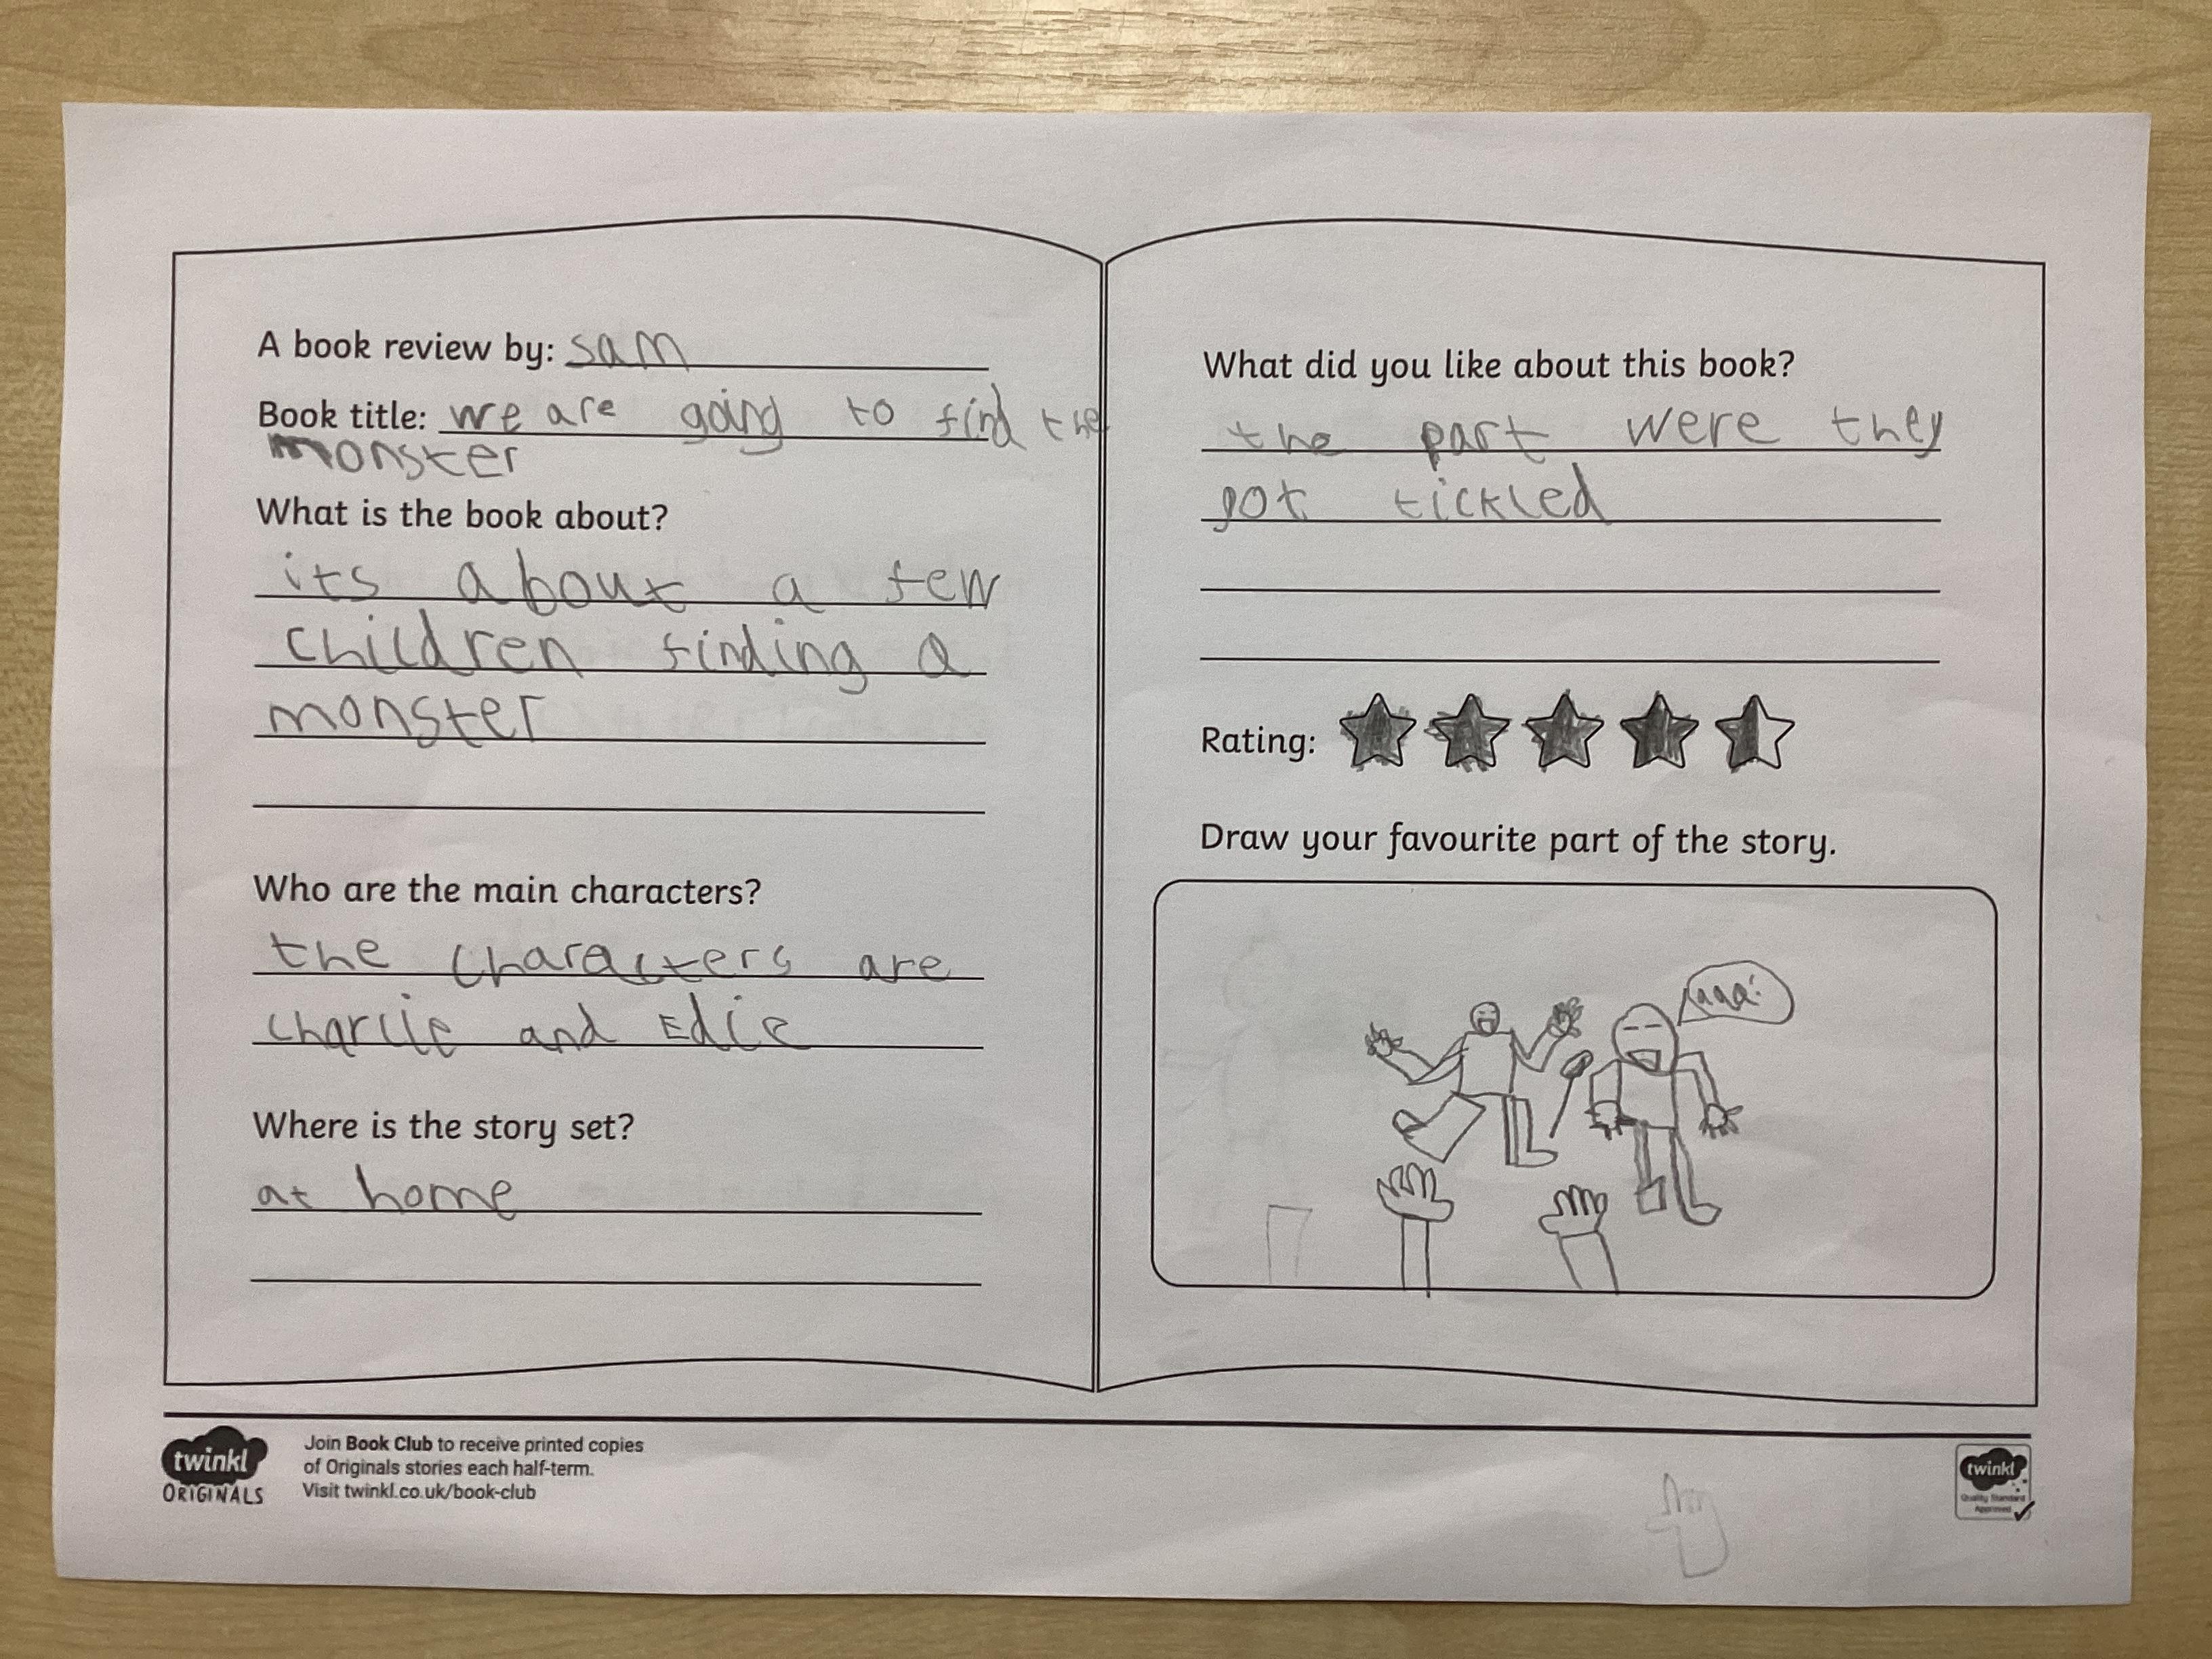 A book review by: sam
Book title: we are going to find the
monster
What is the book about?
its about a few
children finding a
monster
Who are the main characters?
the characters are
charlie and Edie
Where is the story set?
at home
What did you like about this book?
the part were they
got tickled
Rating:
Draw your favourite part of the story.
aaa!
twinkl
ORIGINALS
Join Book Club to receive printed copies
of Originals stories each half-term.
Visit twinkl.co.uk/book-club
twinkl
Quality Standard
Approved